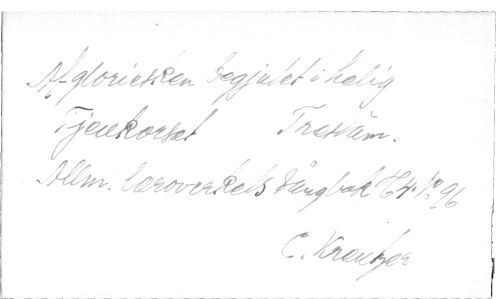 Af gloriesken begjutet i helig
Tjellkorset Trestäm.
Allm. læroverkets Sångbok H4. No 96
C. Kreutzer